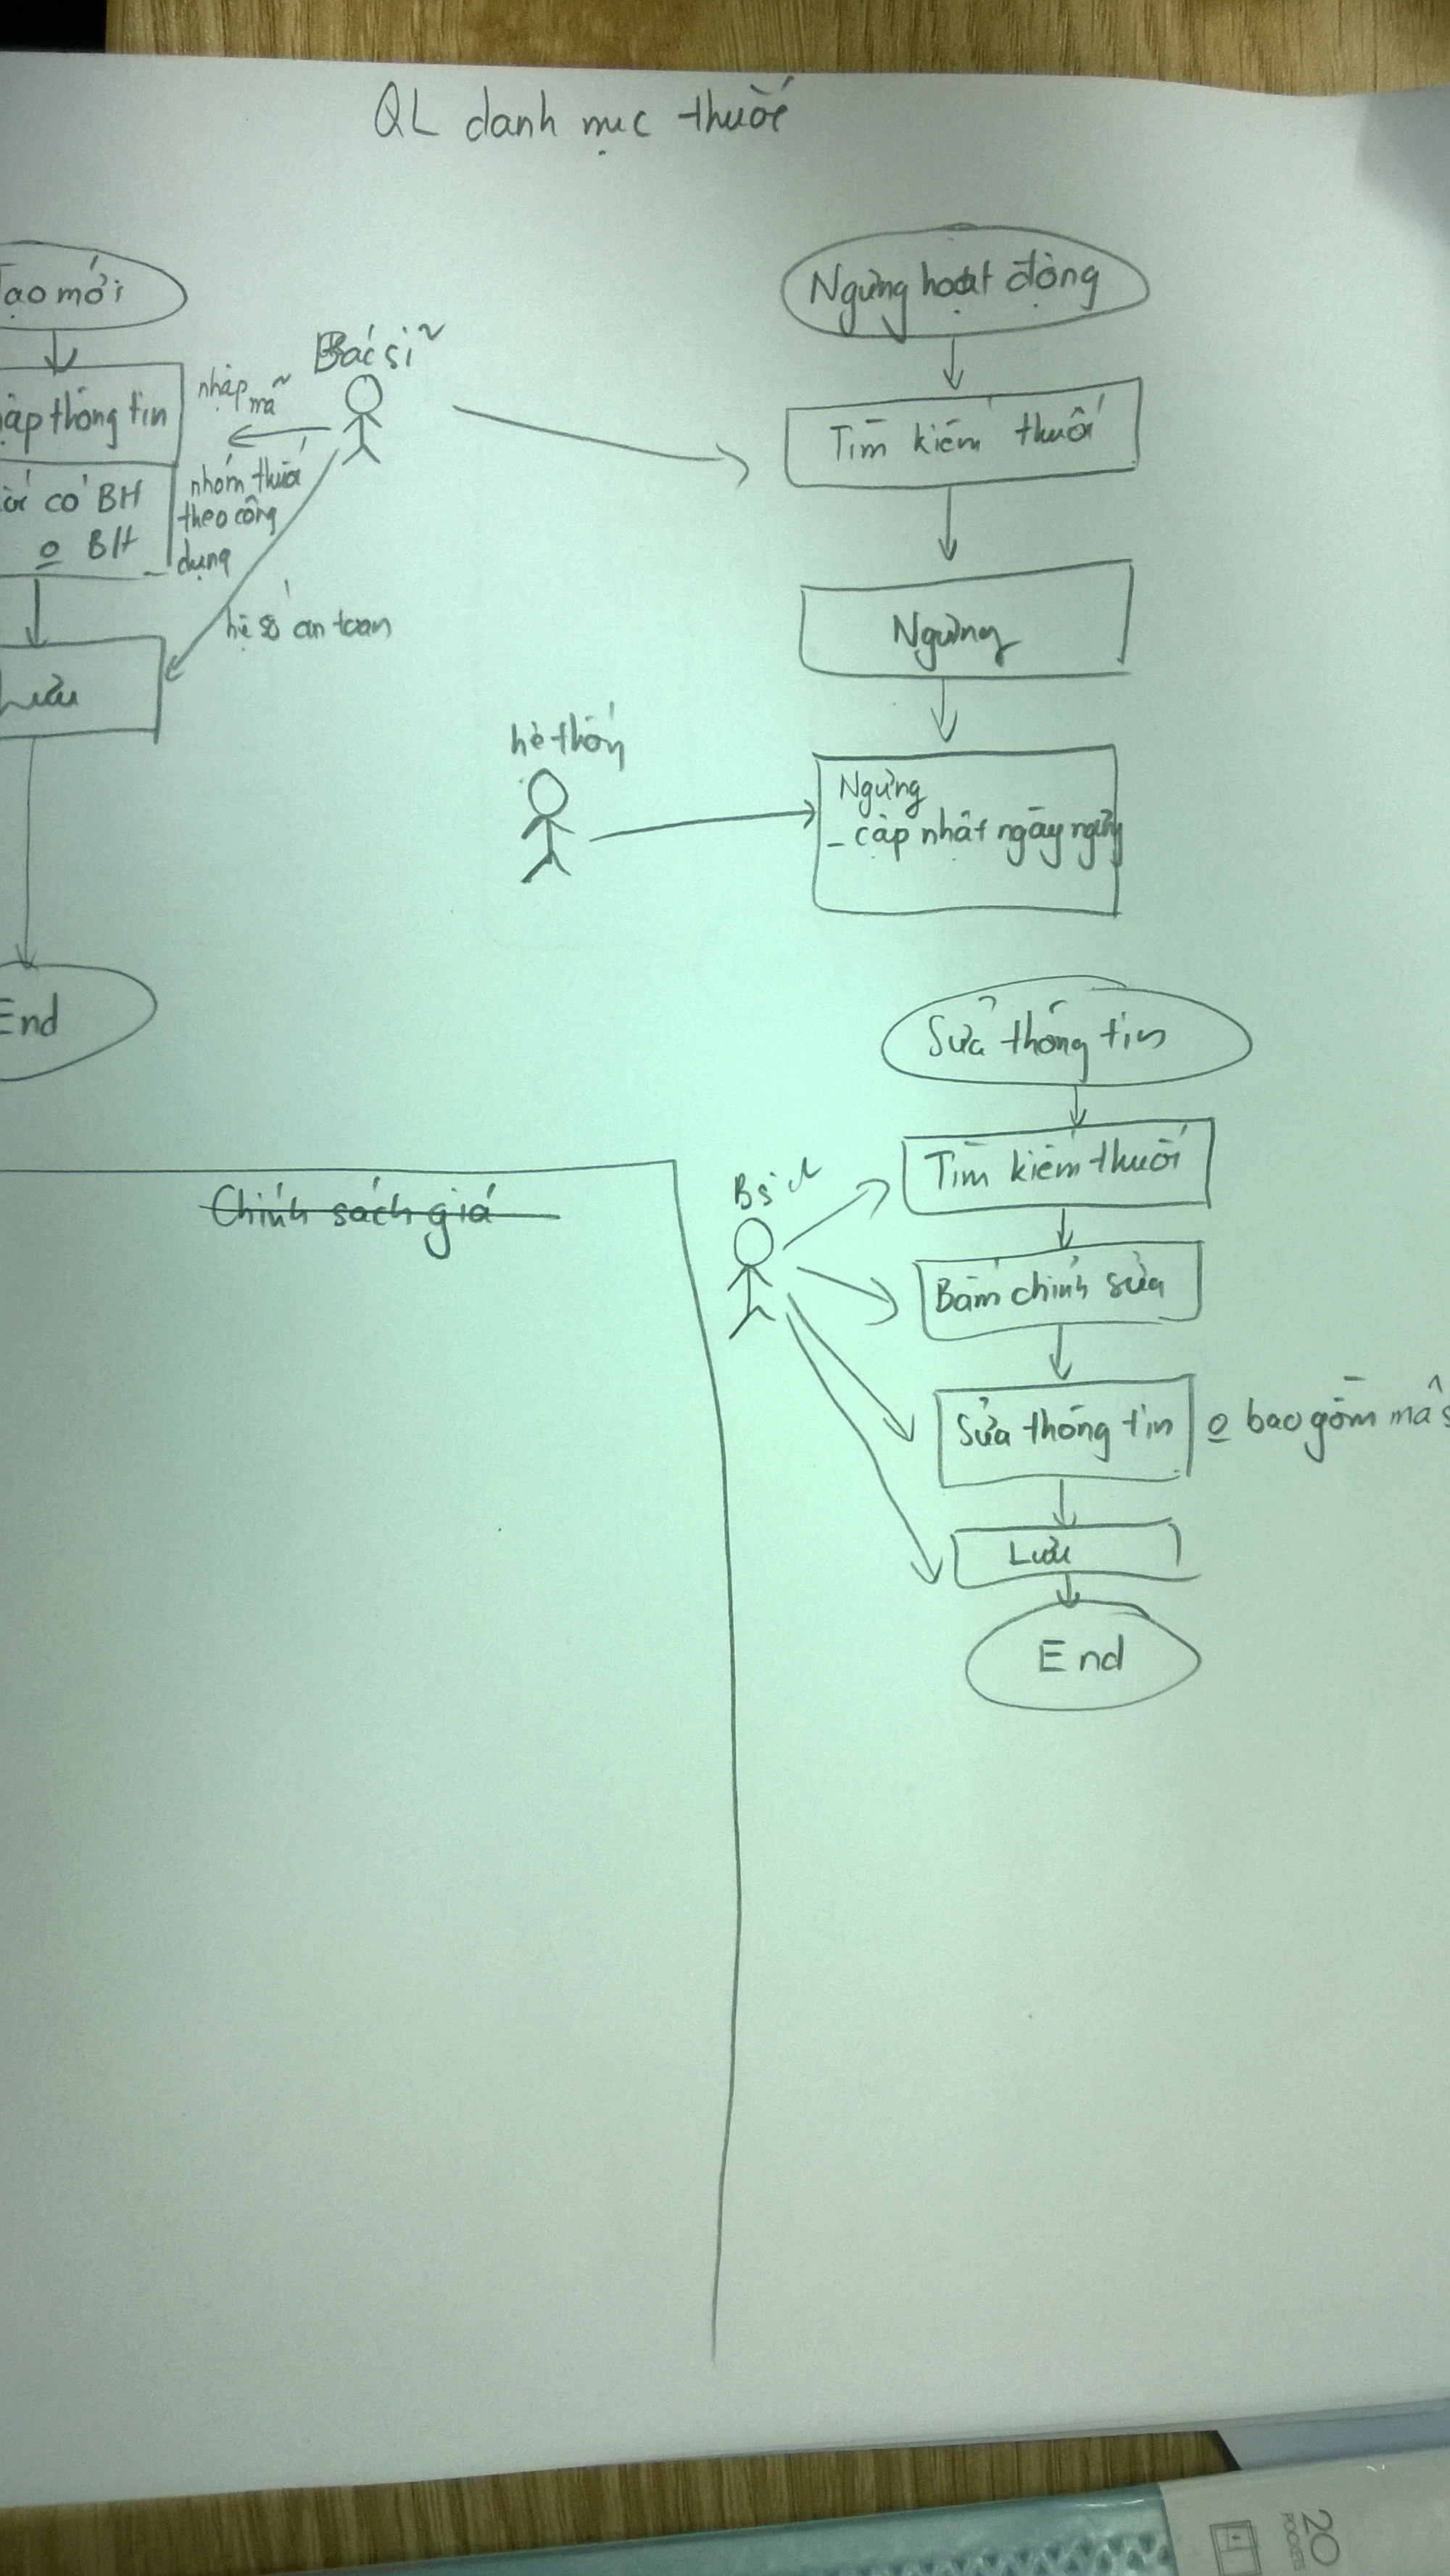 QL danh mục thuốc
Tạo mới
nhập thông tin
có BH
o BH
Lưu
End
Bác sĩ
nhập mã
nhóm thuốc
theo công
dụng
hệ số an toàn
Ngưng hoạt động
Tìm kiếm thuốc
Ngưng
hệ thống
Ngưng
- cập nhật ngày ngưng
Chính sách giá
Sửa thông tin
Bsĩ
Tìm kiếm thuốc
Bấm chỉnh sửa
Sửa thông tin
o bao gồm mã s
Lưu
End
20
POCKET